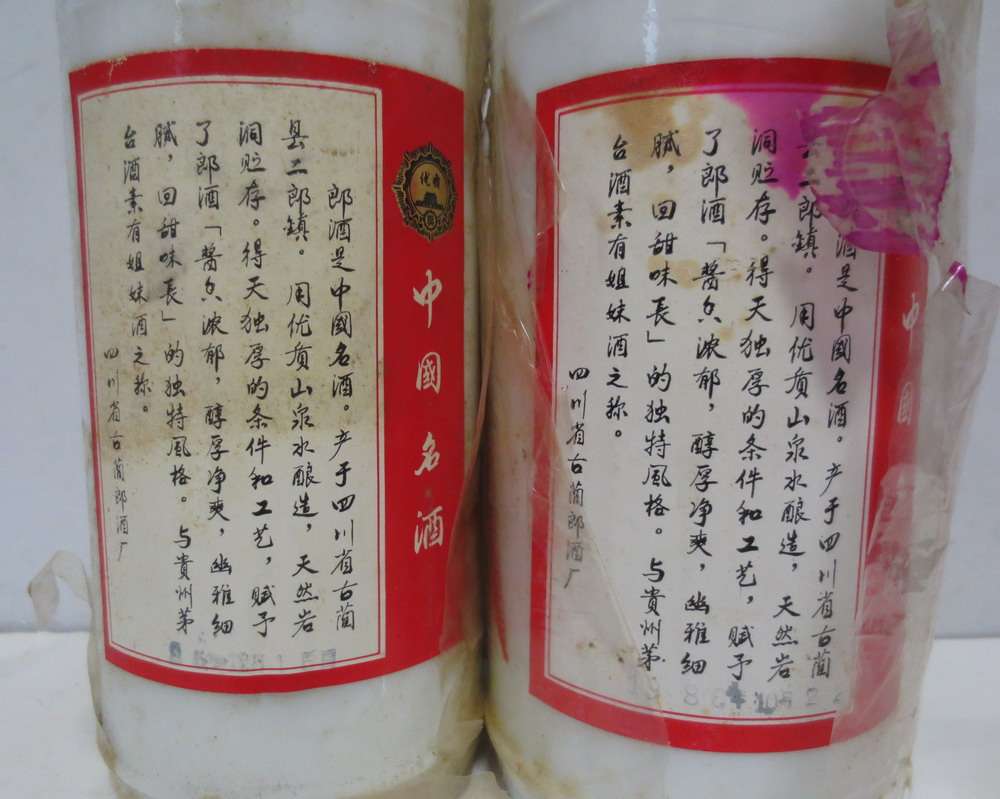 中國名酒
郎酒是中國名酒。产于四川省古蔺
县二郎鎮。用优质山泉水酿造，天然岩
洞贮存。得天独厚的条件和工艺，赋予
了郎酒「醬香浓郁，醇厚净爽，幽雅细
腻，回甜味長」的独特風格。与貴州茅
台酒素有姐妹酒之称。
四川省古蔺郎酒厂
中國
酒是中國名酒。产于四川省古蔺
二郎鎮。用优质山泉水酿造，天然岩
洞贮存。得天独厚的条件和工艺，赋予
了郎酒「醬香浓郁，醇厚净爽，幽雅细
腻，回甜味長」的独特風格。与貴州茅
台酒素有姐妹酒之称。
四川省古蔺郎酒厂